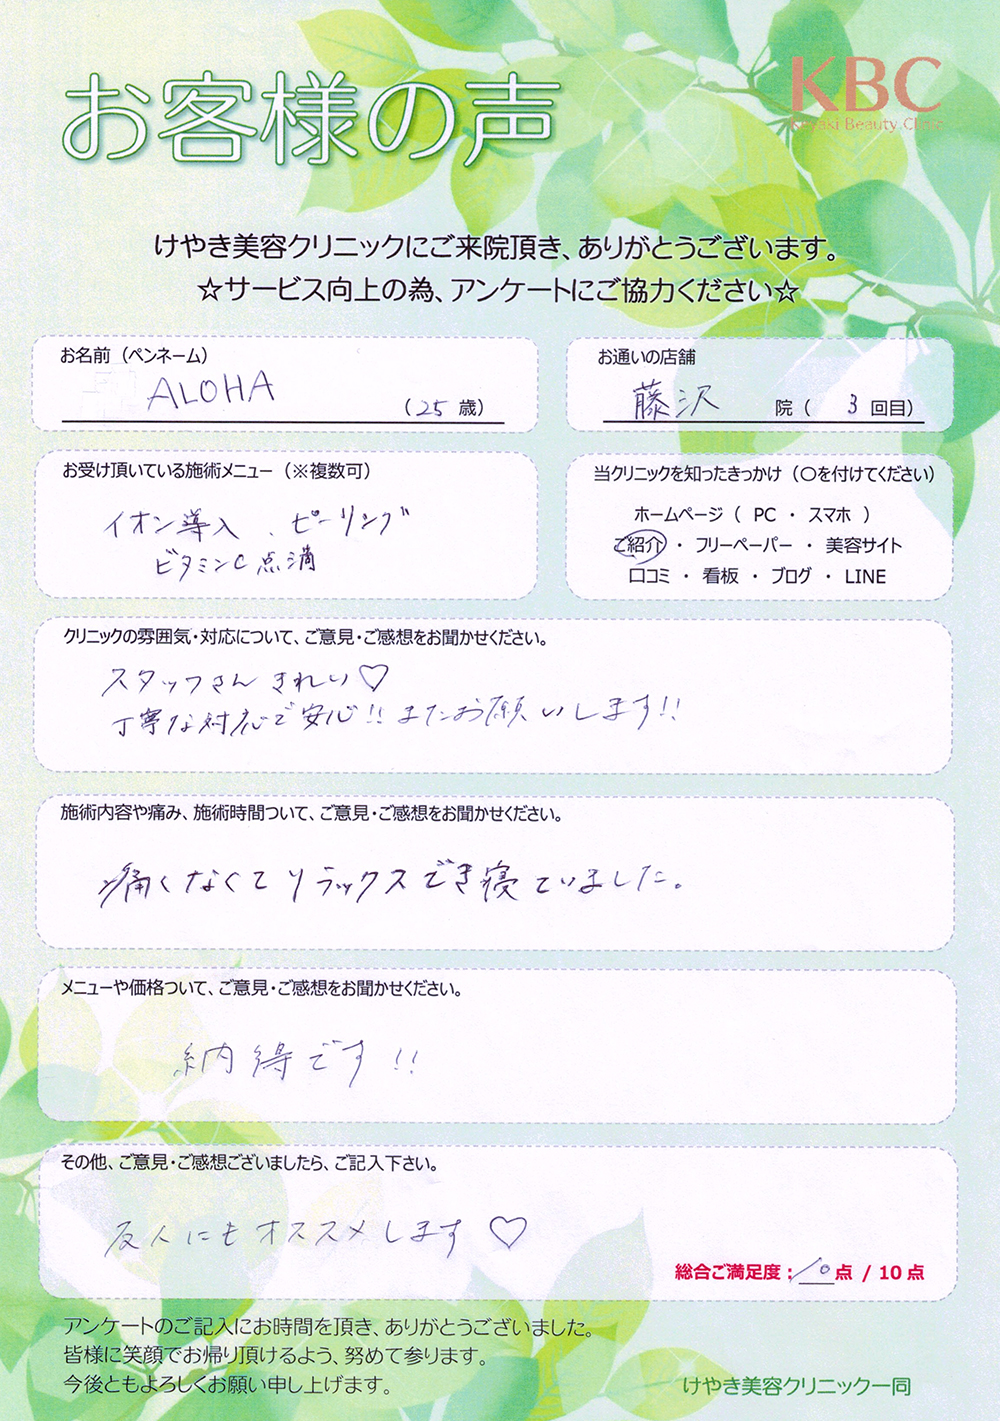 お客様の声
KBC
Keyaki Beauty Clinic
けやき美容クリニックにご来院頂き、ありがとうございます。
☆サービス向上の為、アンケートにご協力ください☆
お名前（ペンネーム）
ALOHA
（25 歳）
お通いの店舗
藤沢 院（ 3 回目）
お受け頂いている施術メニュー（※複数可）
イオン導入、ピーリング
ビタミンC点滴
当クリニックを知ったきっかけ（〇を付けてください）
ホームページ（ PC ・ スマホ ）
ご紹介 ・ フリーペーパー ・ 美容サイト
口コミ ・ 看板 ・ ブログ ・ LINE
クリニックの雰囲気・対応について、ご意見・ご感想をお聞かせください。
スタッフさんきれい♡
丁寧な対応で安心!! またお願いします!!
施術内容や痛み、施術時間ついて、ご意見・ご感想をお聞かせください。
痛くなくてリラックスでき寝ていました。
メニューや価格ついて、ご意見・ご感想をお聞かせください。
納得です!!
その他、ご意見・ご感想ございましたら、ご記入下さい。
友人にもオススメします♡
総合ご満足度：10点 / 10点
アンケートのご記入にお時間を頂き、ありがとうございました。
皆様に笑顔でお帰り頂けるよう、努めて参ります。
今後ともよろしくお願い申し上げます。
けやき美容クリニック一同